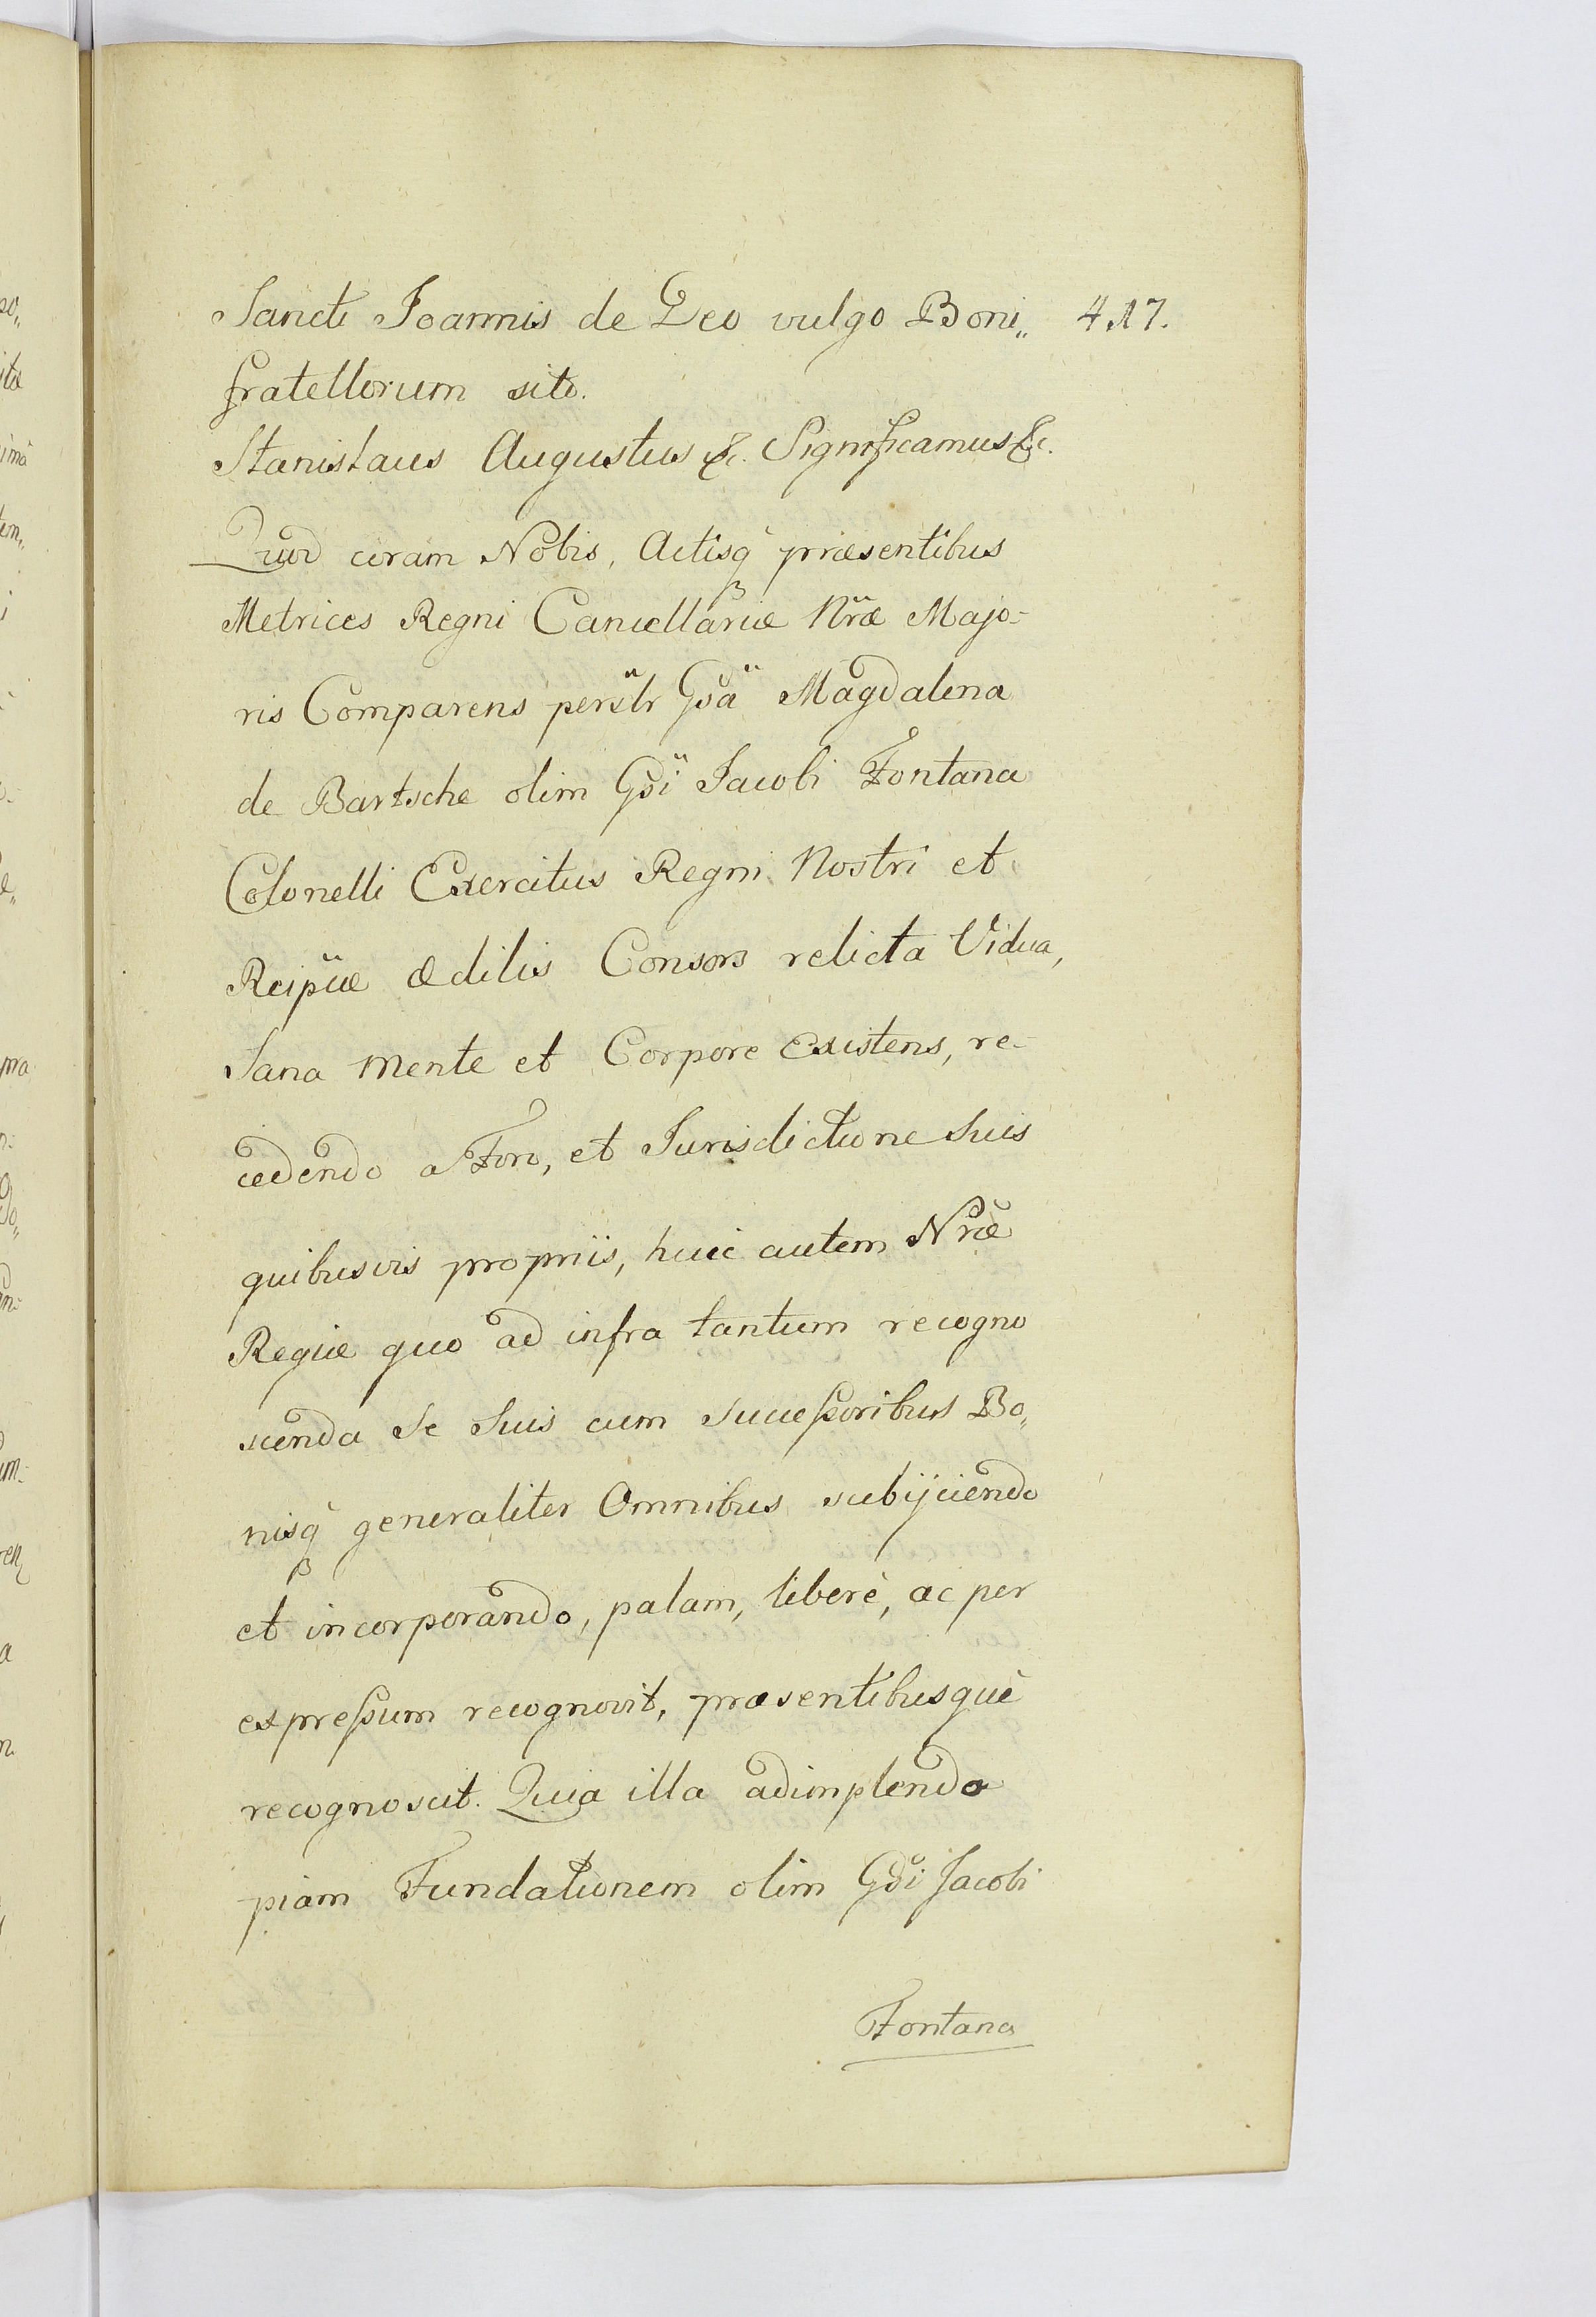 Sancti Joannis de Deo vulgo Boni„ 417.
fratellorum sito.
Stanislaus Augustus &c. Significamus &c.
Quod coram Nobis, Actisq̃ præsentibus
Metrices Regni Cancellariæ Nr̃æ Majo-
ris Comparens persr̃ Gsã Magdalena
de Bartsche olim Gsĩ Jacobi Fontana
Colonelli Exercitus Regni Nostri et
Reipũæ ædilis Consors relicta Vidua,
Sana mente et Corpore Existens, re-
cedendo a Foro, et Jurisdictione Suis
quibusvis propriis, huic autem Nr̃æ
Regiæ quo ad infra tantum recogno
scenda Se Suis cum Successoribus Bo„
nisq̃ generaliter Omnibus subijciendo
et incorporando, palam, liberè, ac per
expressum recognovit, præsentibusquè
recognoscit. Quia illa adimplendo
piam Fundationem olim Gdĩ Jacobi
Fontana